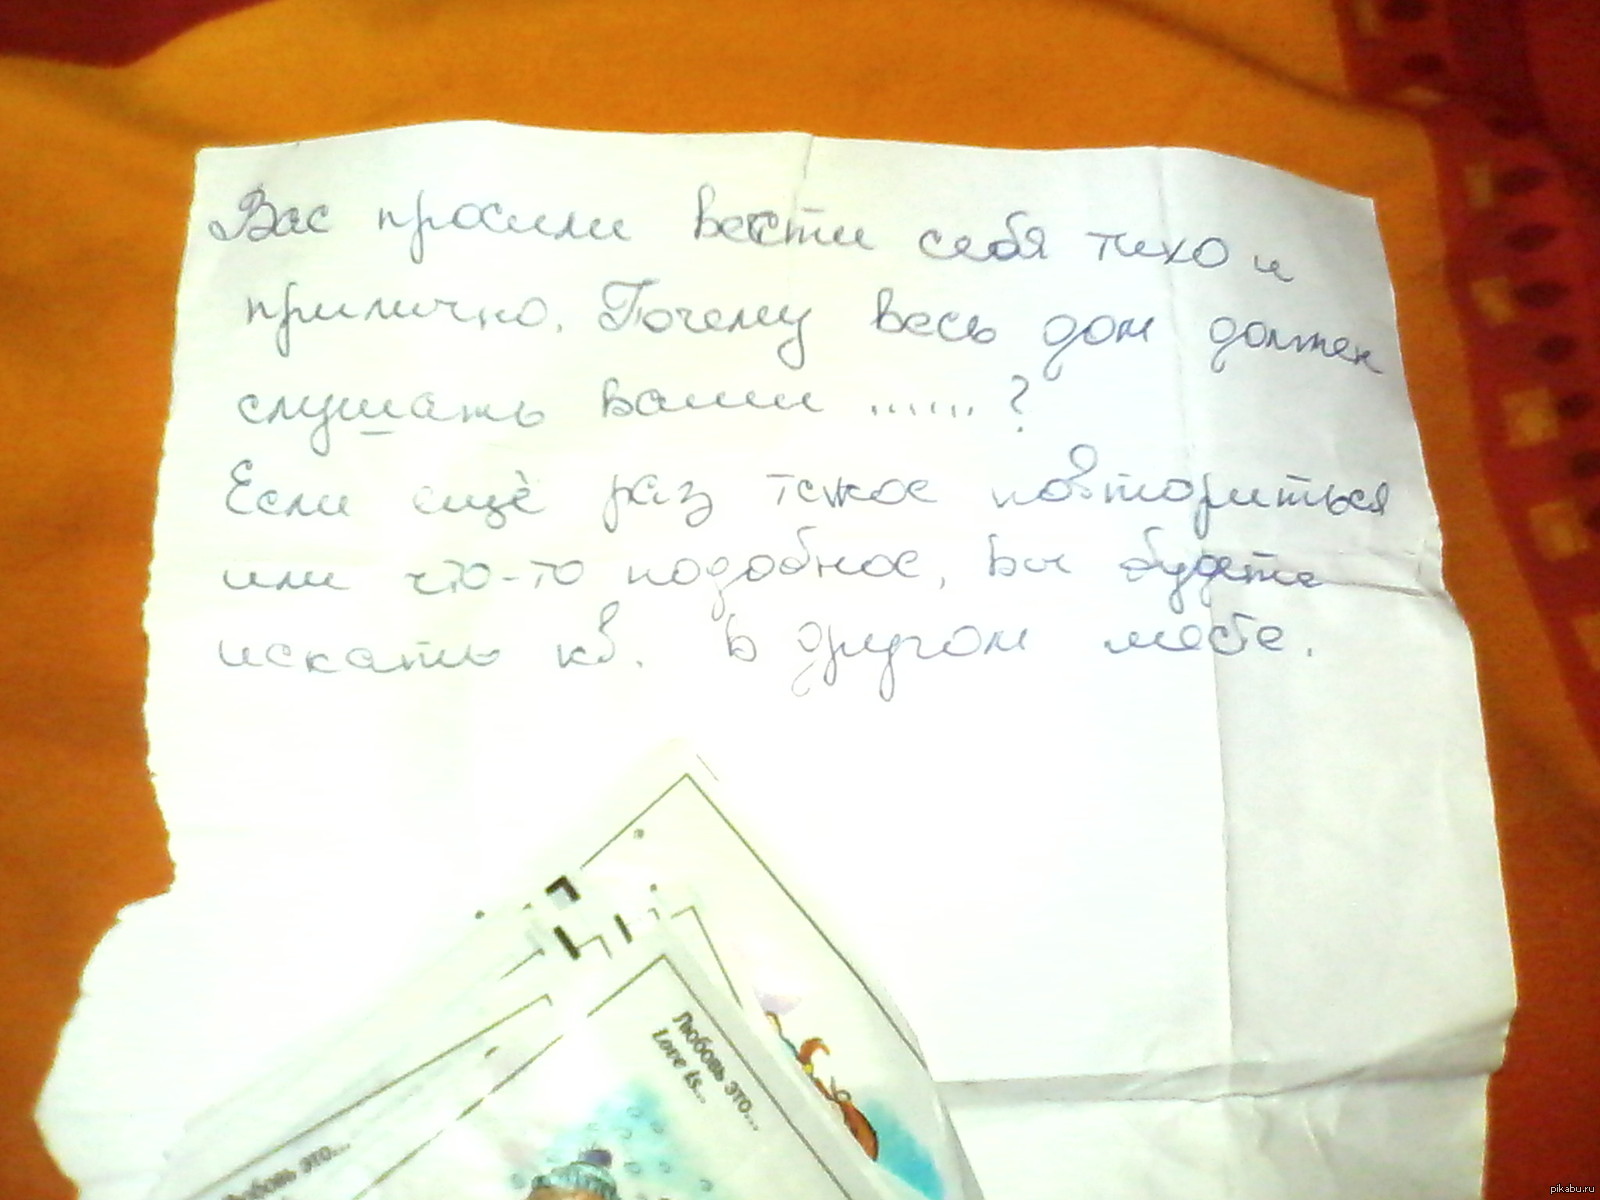 Вас просили вести себя тихо и
прилично. Почему весь дом должен
слушать ваши ......?
Если ещё раз такое повториться
или что-то подобное, Вы будете
искать кв. в другом месте.
Любовь это...
Love is...
Любовь это...
pikabu.ru